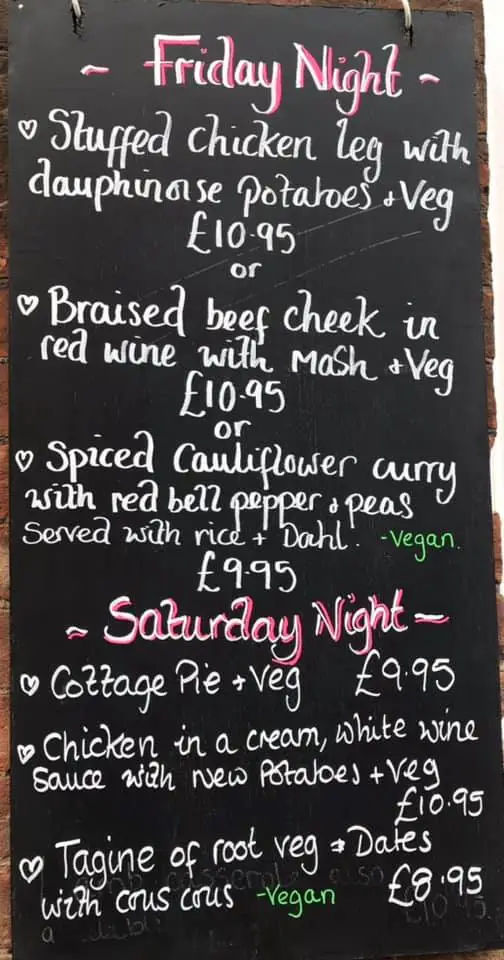 ~ Friday Night ~
♡ Stuffed chicken leg with
dauphinoise potatoes + Veg
£10.95
or
♡ Braised beef cheek in
red wine with Mash + Veg
£10.95
or
♡ Spiced Cauliflower curry
with red bell pepper + peas
Served with rice + Dahl. -Vegan.
£9.95
~ Saturday Night ~
♡ Cottage Pie + Veg £9.95
♡ Chicken in a cream, white wine
Sauce with New Potatoes + Veg
£10.95
♡ Tagine of root veg + Dates
with cous cous -Vegan £8.95